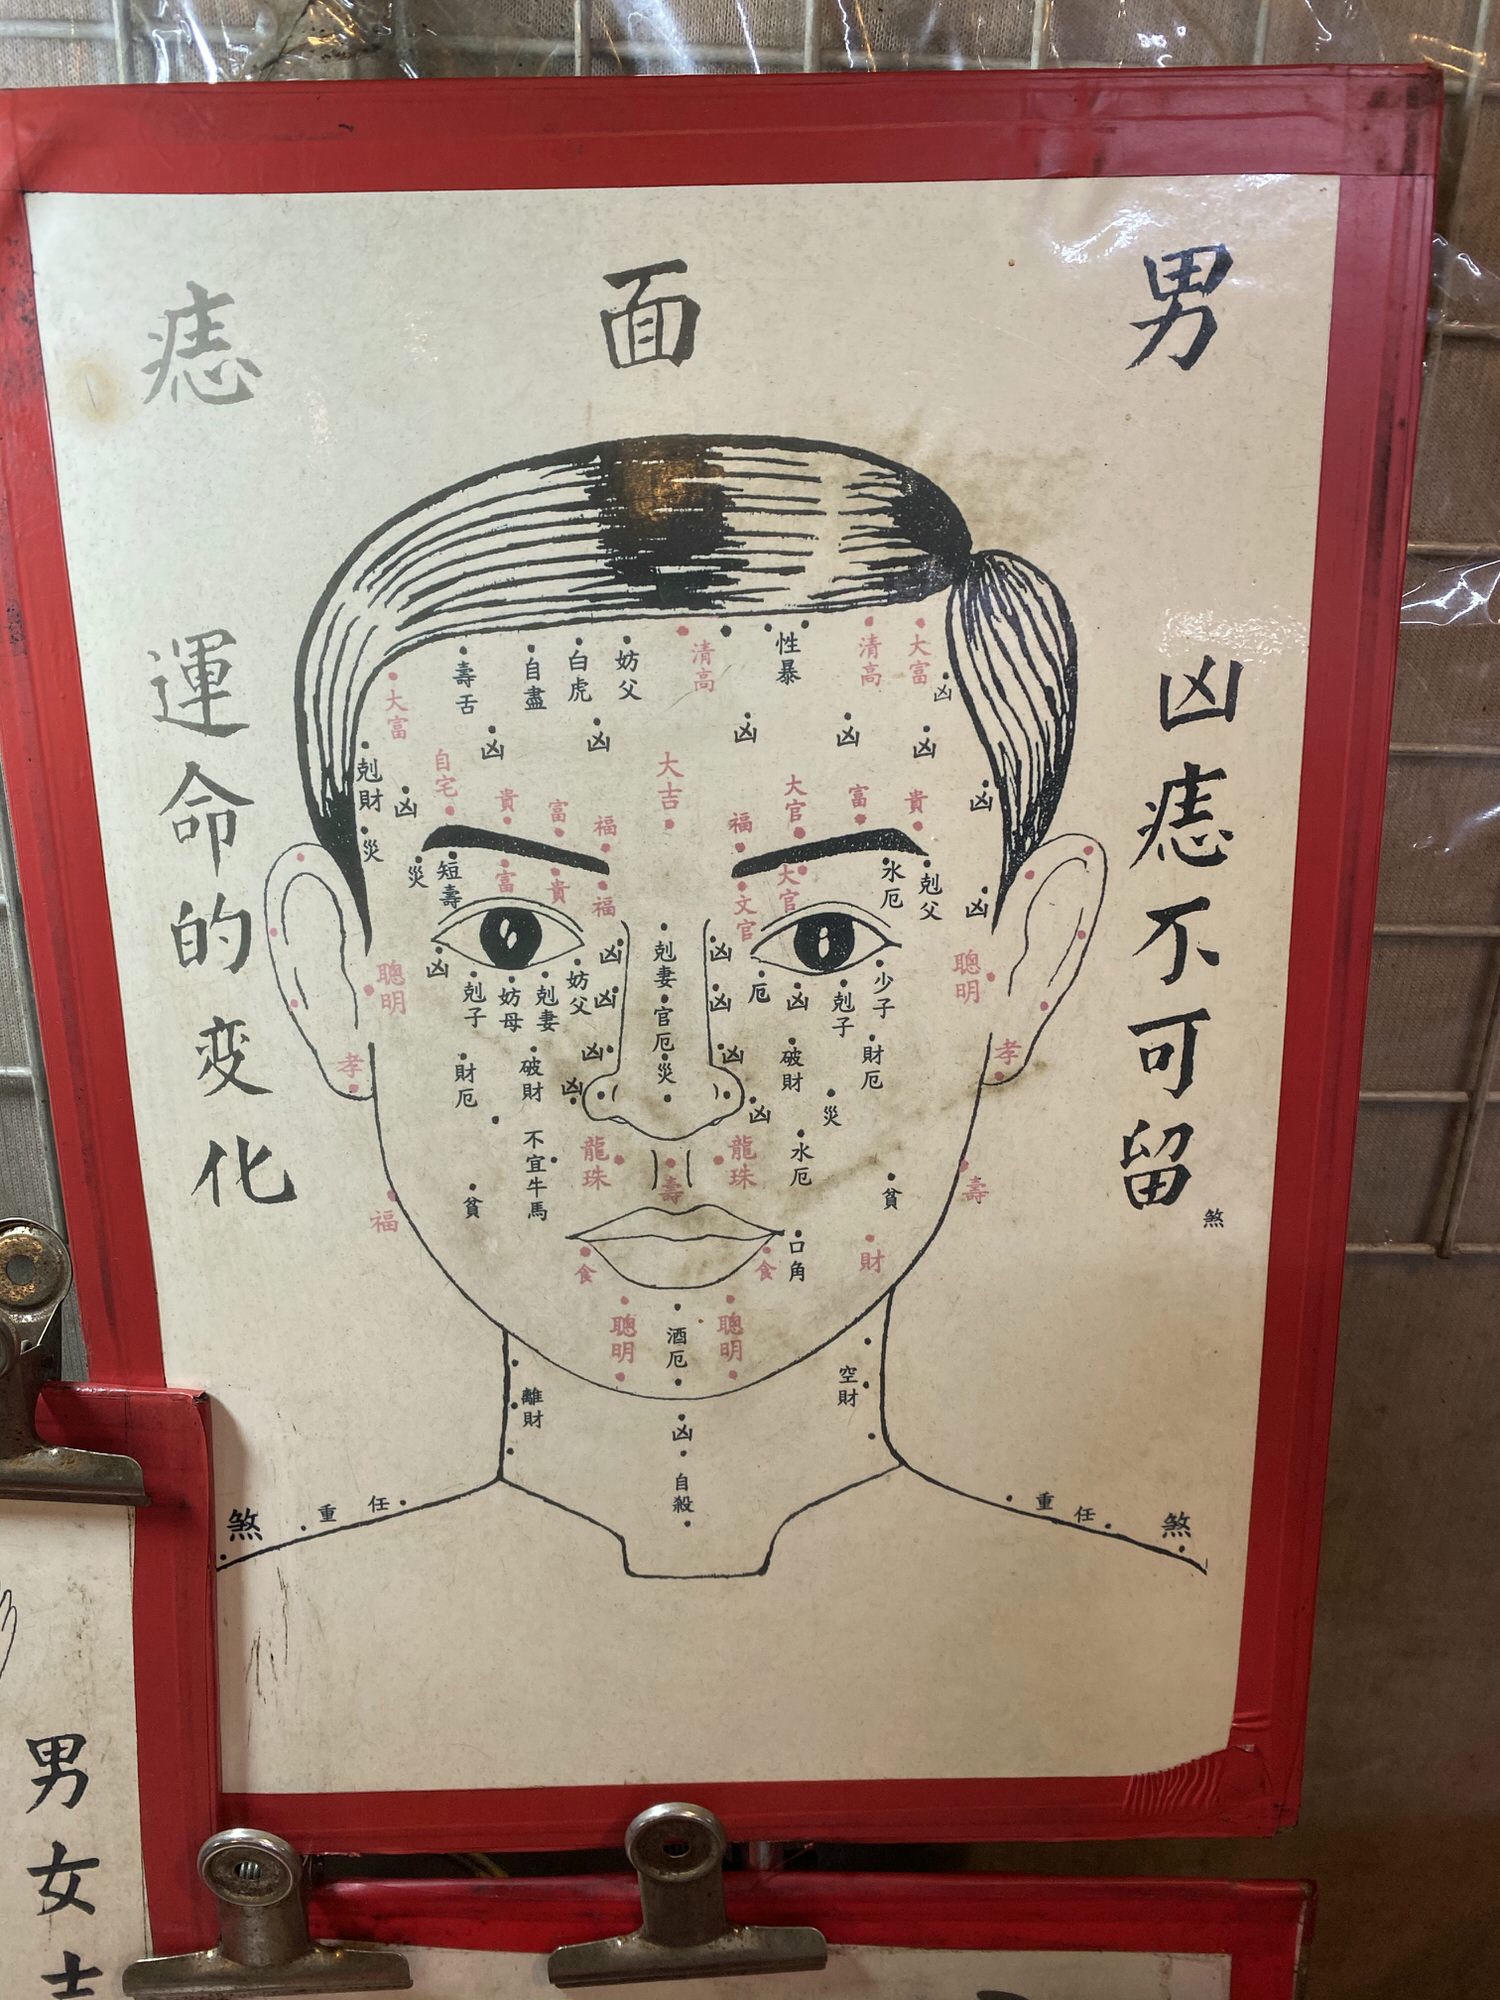 男面痣
凶痣不可留
運命的变化
煞
清高
性暴
清高
大富
凶
妨父
白虎
自盡
壽舌
大富
凶
凶
凶
凶
凶
剋財
凶
災
自宅
貴
富
福
大吉
福
大官
富
貴
凶
災
短壽
富
貴
福
文官
大官
水厄
剋父
凶
聰明
凶
剋子
妨母
剋妻
妨父
凶
凶
凶
凶
剋妻
官厄
災
凶
凶
凶
凶
厄
凶
剋子
少子
聰明
孝
財厄
破財
破財
財厄
災
孝
不宜牛馬
龍珠
壽
龍珠
水厄
貧
貧
壽
福
食
食
口角
財
聰明
酒厄
聰明
離財
空財
凶
自殺
煞
重任
重任
煞
男女士